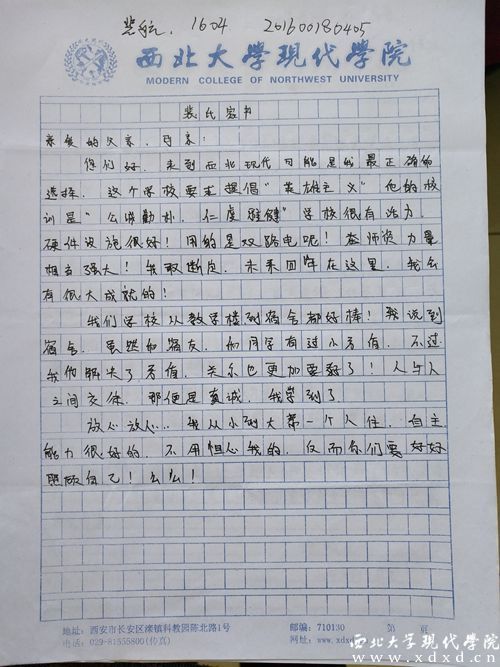 裴航, 1604 201600180405
西北大学现代学院
MODERN COLLEGE OF NORTHWEST UNIVERSITY
裴氏家书
亲爱的父亲、母亲:
你们好,来到西北现代可能是我最正确的
选择。这个学校要求提倡“英雄主义”他的校
训是“公诚勤朴,仁虔雄健”学校很有活力。
硬件设施很好!用的是双路电呢!查师资力量
相当强大!我敢断定,未来四年在这里,我会
有很大成就的!
我们学校从教学楼到宿舍都好棒!我说到
宿舍,虽然和宿友,和同学有过小矛盾,不过
我们解决了矛盾,关系也更加要好了!人与人
之间交往,那便是真诚,我学到了。
放心放心,我从小到大第一个人住,自主
能力很好的,不用担心我的,反而你们要好好
照顾自己!么么!
地址:西安市长安区滦镇科教园陈北路1号
邮编:710130
第 页
电话:029-81555800(传真)
网址:www.xdxd
西北大学现代学院
www.xdxd.cn